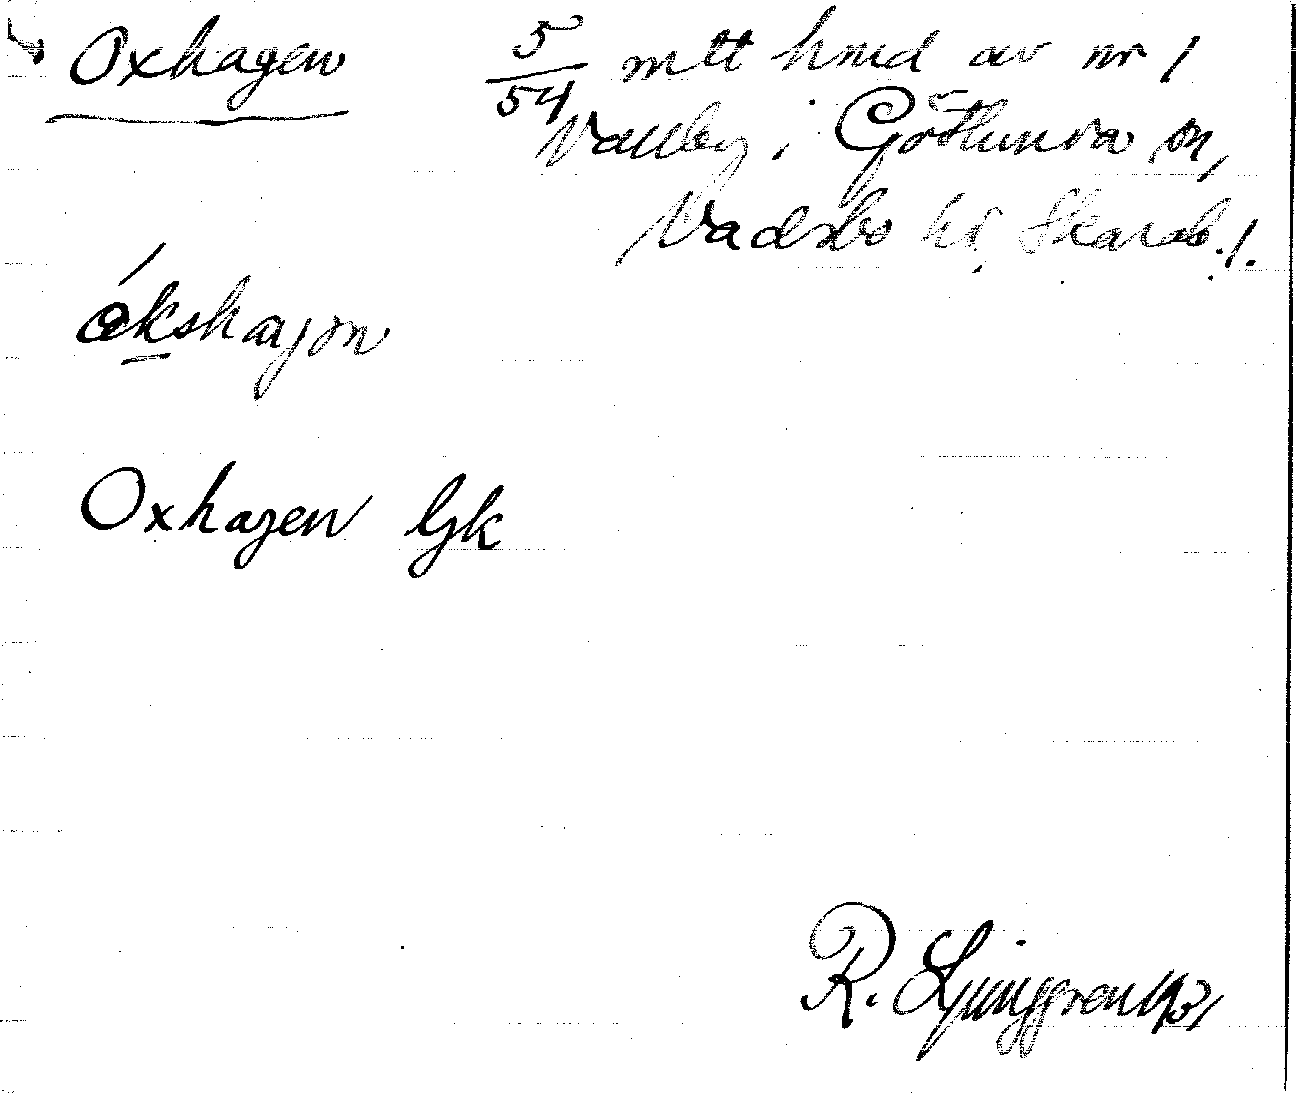 Oxhagen 5/54 mtt hmd av nr 1
Vallby i Götlunda sn,
Vadsbo hd, Skarab. l.
ókshaɡən
Oxhagen Gk
R. Ljunggren 1931